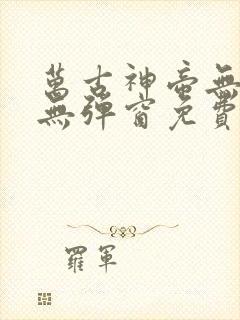 萬古神帝無
無彈窗免費
羅軍